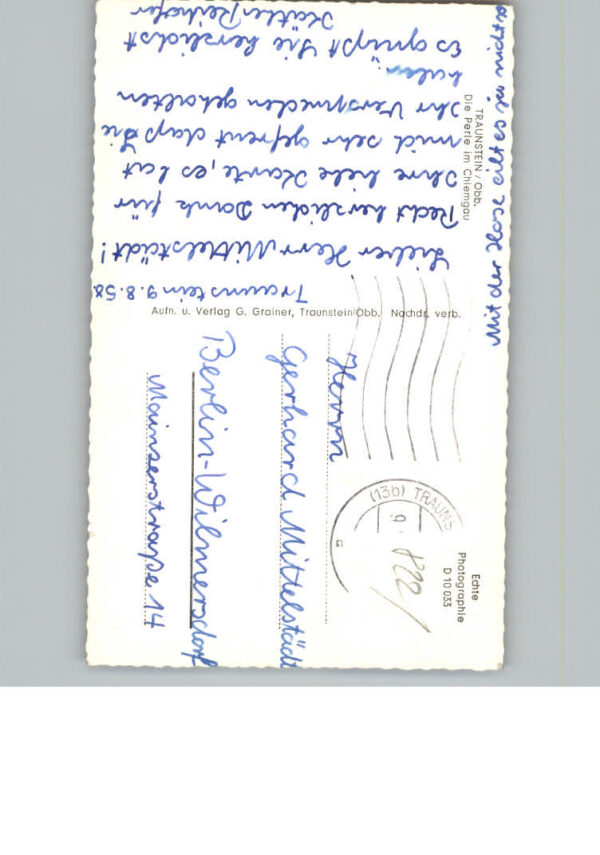 TRAUNSTEIN / Obb.
Die Perle im Chiemgau
Traunstein 9.8.58
Lieber Herr Mittelstädt!
Recht herzlichen Dank für
Ihre liebe Karte, es hat
mich sehr gefreut daß Sie
Ihr Versprechen gehalten
haben.
Es grüßt Sie herzlichst
Käthe
Mit der Hose eilt es ja nicht so
Aufn. u. Verlag G. Grainer, Traunstein/Obb. Nachdr. verb.
(13b) TRAUNS
9.
a
822/
Echte
Photographie
D 10 033
Herrn
Gerhard Mittelstädt
Berlin-Wilmersdorf
Mainzerstraße 14